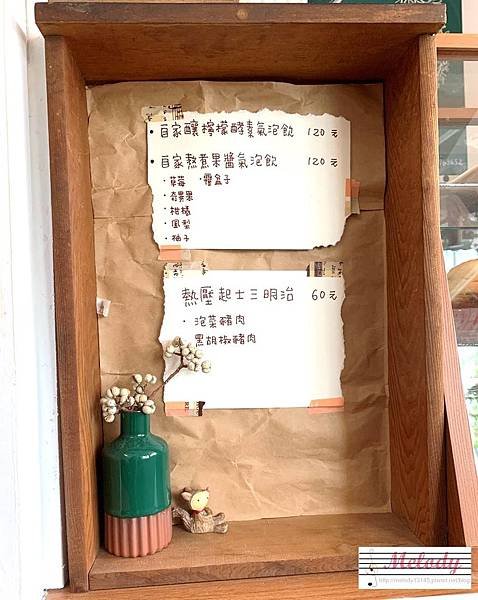 • 自家釀檸檬酵素氣泡飲 120元
• 自家熬煮果醬氣泡飲 120元
· 草莓 · 覆盆子
· 奇異果
· 柑橘
· 鳳梨
· 柚子
熱壓起士三明治 60元
· 泡菜豬肉
黑胡椒豬肉
Melody
http://melody12145.pixnet.net/blog